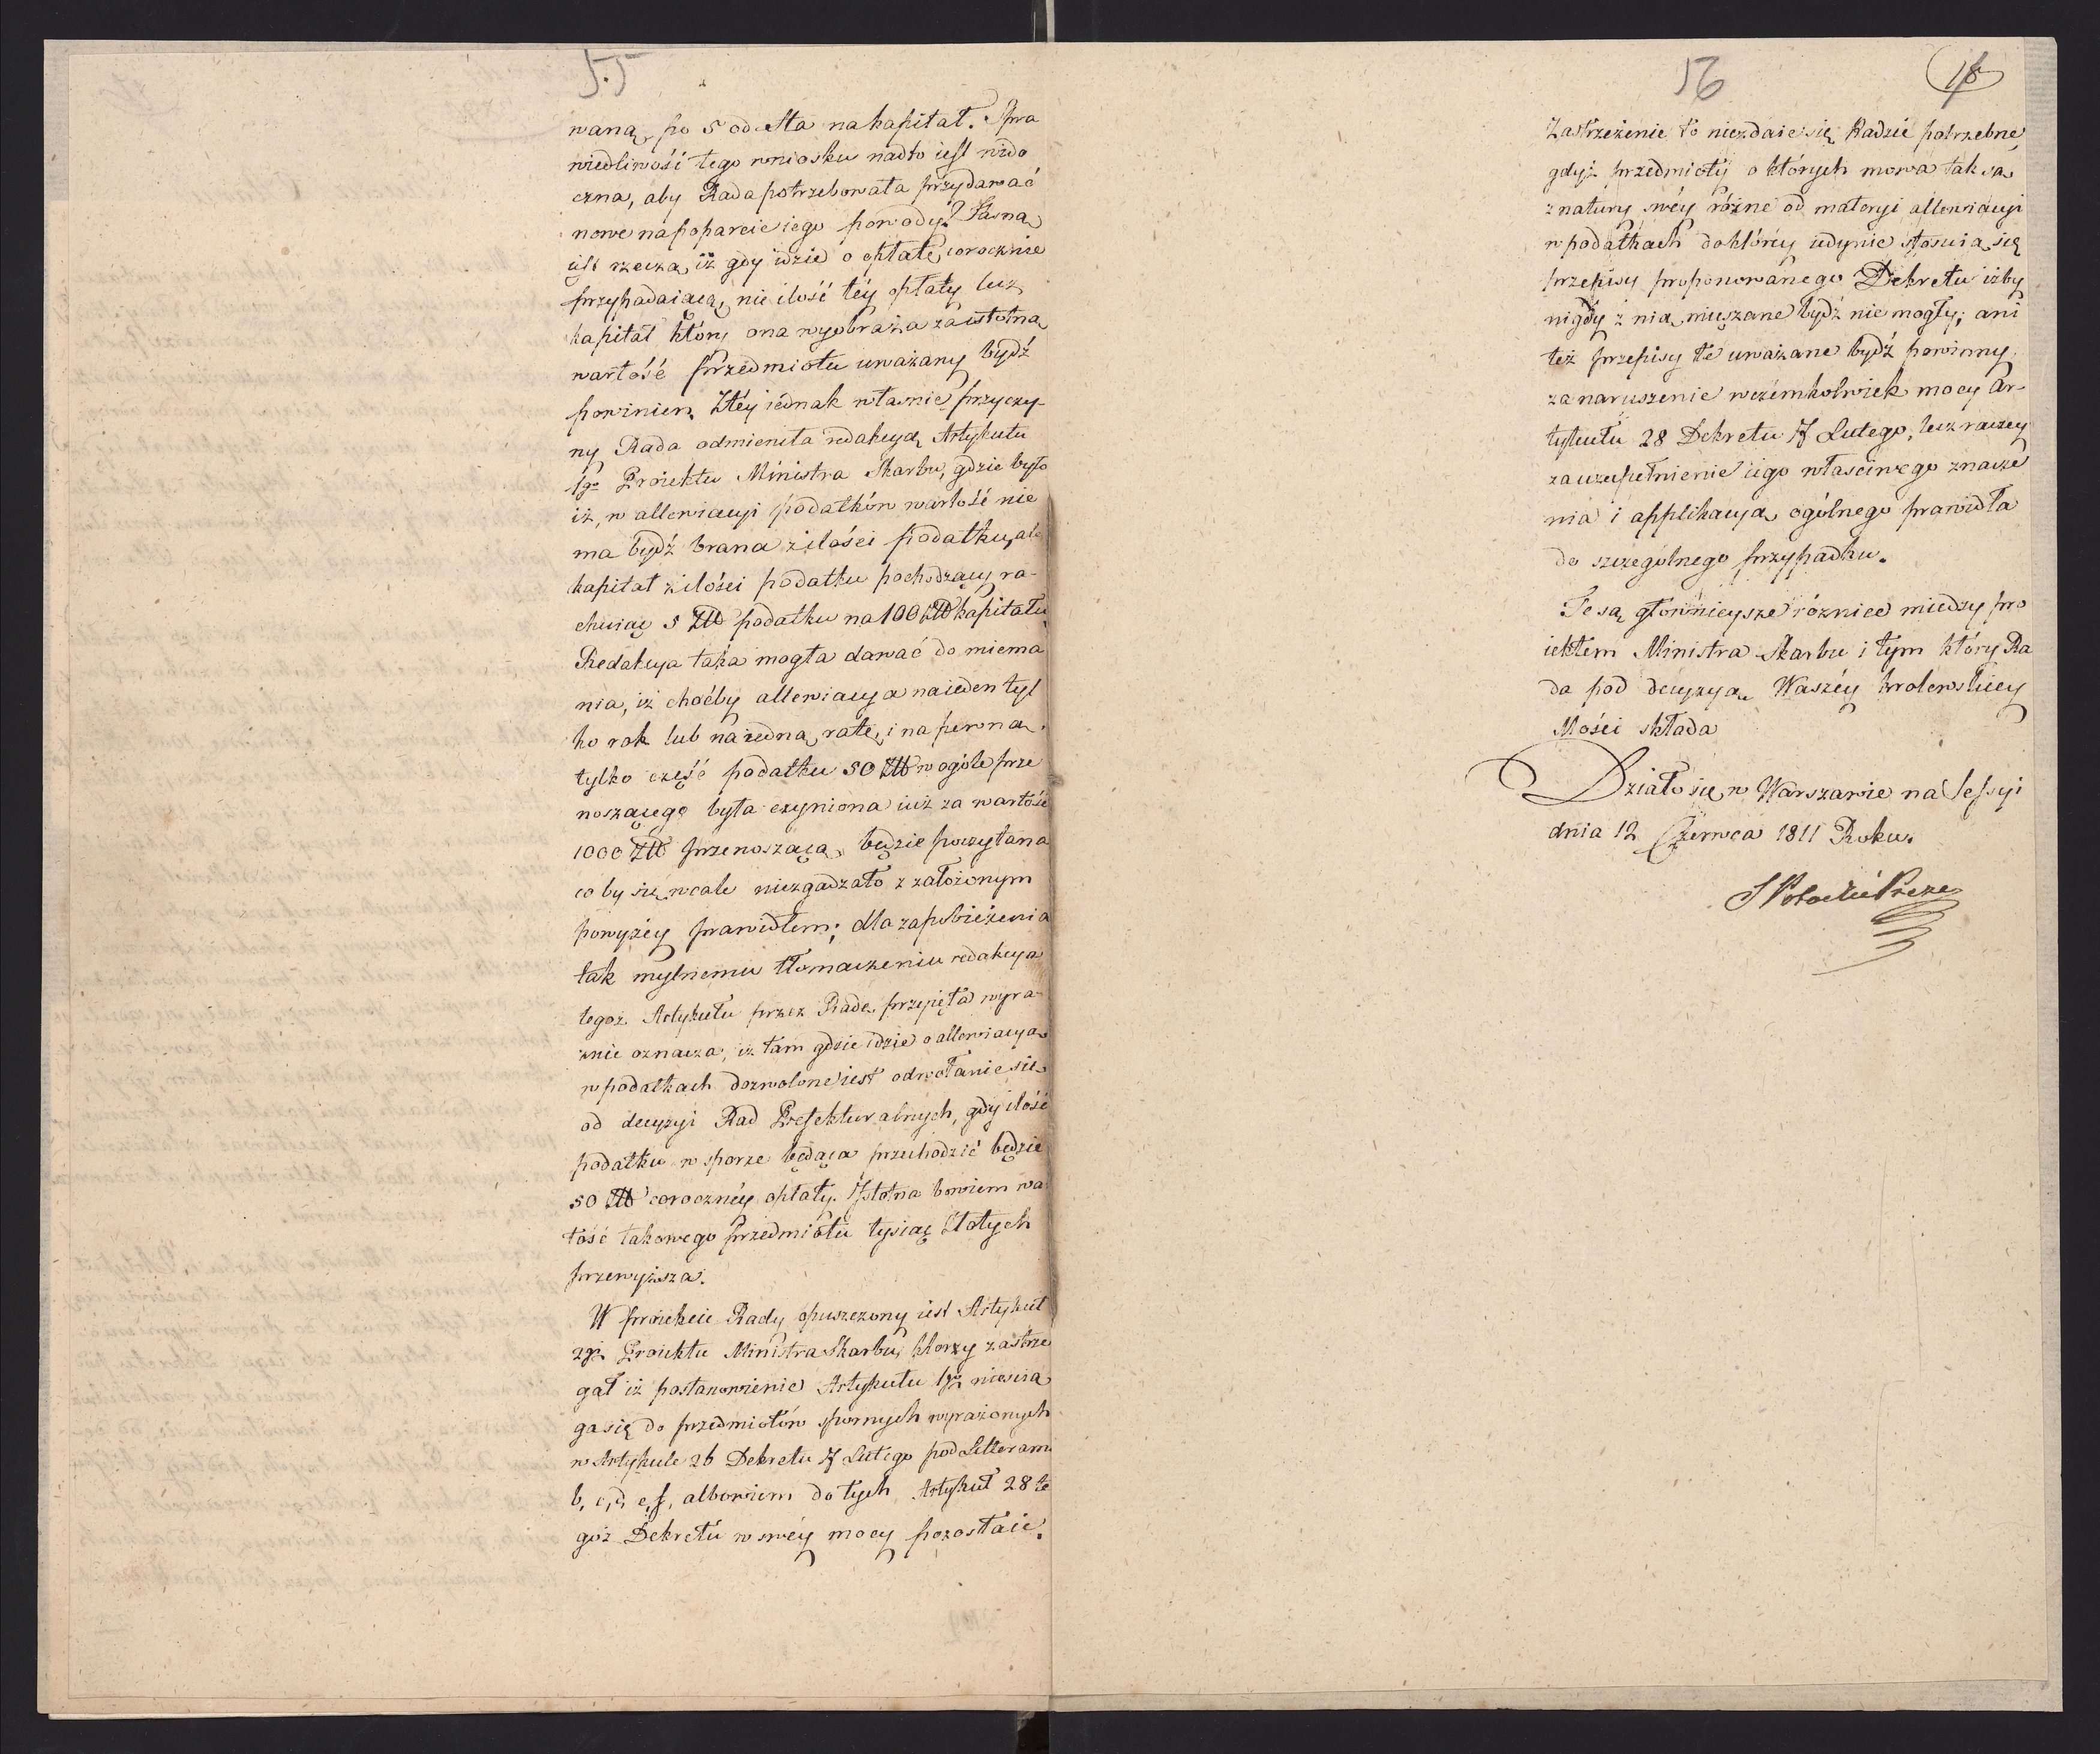 55
waną po 5 od Sta na kapitał. Spra
wiedliwość tego wniosku nadto iest wido
czna, aby Rada potrzebowała przydawać
nowe na poparcie iego powody? Jasną
iest rzeczą, iż gdy idzie o opłatę corocznie
przypadaiącą, nie ilość téy opłaty lecz
kapitał który ona wyobraża za istotną
wartość przedmiotu uważany bydź
powinien. Z téy iednak własnie przyczy-
ny Rada odmieniła redakcyą Artykułu
1go Proiektu Ministra Skarbu, gdzie było
iż, w allewiacyi podatków wartość nie
ma bydź brana z ilości podatku, ale
kapitał z ilości podatku pochodzący ra-
chuiąc 5 Złł podatku na 100 Złł kapitału.
Redakcya taka mogła dawać do miema
nia, iż choćby allewiacya na ieden tyl
ko rok lub na iedną ratę, i na pewną
tylko część podatku 50 Złł w ogóle prze
noszącego była czyniona iuż za wartość
1000 Złł przenoszącą będzie poczytana
co by się wcale niezgadzało z założonym
powyżéy prawidłem; dla zapobieżenia
tak mylnemu tłomaczeniu redakcya
tegoż Artykułu przez Radę przyięta wyra-
źnie oznacza, iż tam gdzie idzie o allewiacyą
w podatkach dozwolone iest odwołanie się
od decyzyi Rad Prefekturalnych, gdy ilość
podatku w sporze będąca przechodzić będzie
50 Złł corocznéy opłaty. Istotna bowiem wa
tość takowego przedmiotu tysiąc Złotych
przewyższa.
W proiekcie Rady opuszczony iest Artykuł
2gi Proiektu Ministra Skarbu, ktorzy zastrze
gał iż postanowienie Artykułu 1go niescią
ga się do przedmiotów spornych wyrażonych
w Artykule 26 Dekretu 7 Lutego pod Litteram
b, c, d, e, f, albowiem do tych Artykuł 28 te
goż Dekretu w swéy mocy pozostaie.
56
Zastrzeżenie to niezdaie się Radzie potrzebne,
gdyż przedmioty o których mowa tak są
z natury swéy różne od materyi allewiacyi
w podatkach do któréy iedynie stosuią się
przepisy proponowanego Dekretu iżby
nigdy z nią mięszane bydź nie mogły; ani
też przepisy te uważane bydź powinny
za naruszenie wczémkolwiek mocy Ar-
tykułu 28 Dekretu 7 Lutego, lecz raczey
za uzupełnienie iego własciwego znacze
nia i applikacyą ogólnego prawidła
do szczególnego przypadku.
Te są głownieysze różnice między pro
iektem Ministra Skarbu i tym który Ra
da pod decyzyą Waszéy Krolewskiey
Mości składa
Działo się w Warszawie na Sessyi
dnia 12 Czerwca 1811 Roku.
S Potocki Prezes